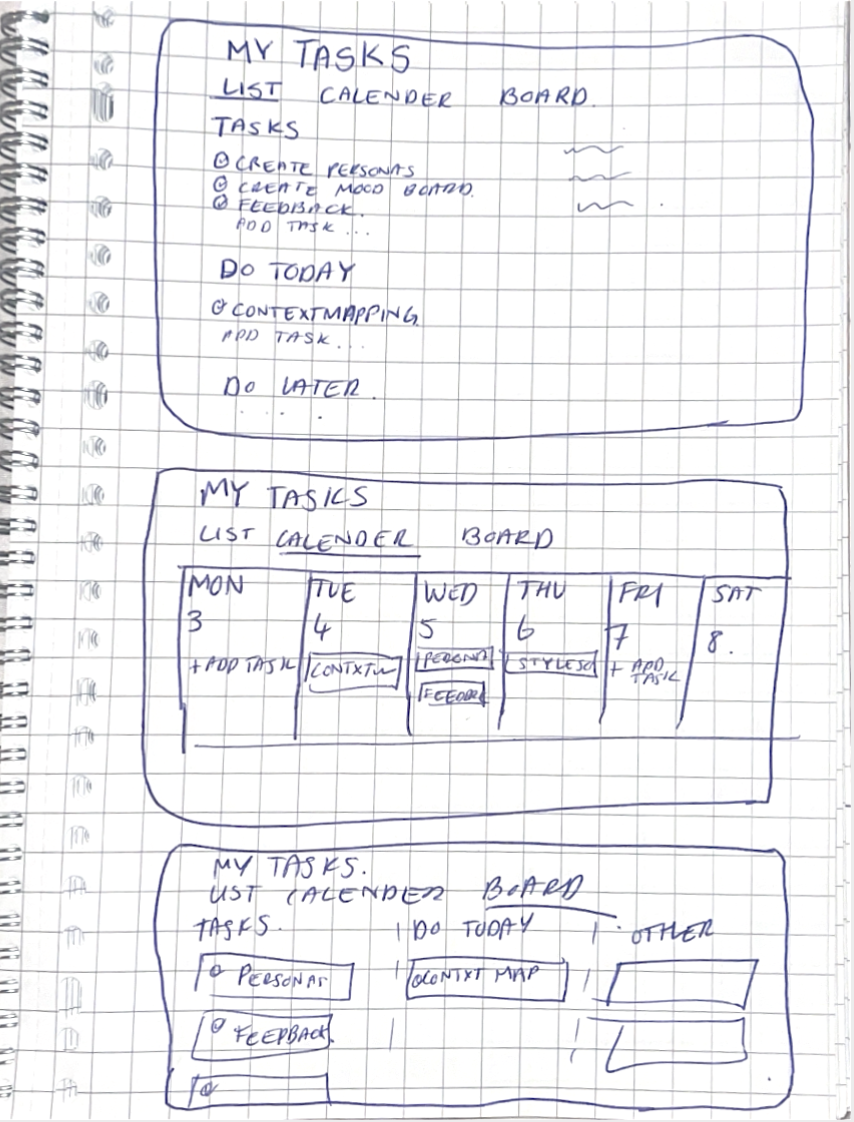 MY TASKS
LIST CALENDER BOARD
TASKS
CREATE PERSONAS
CREATE MOOD BOARD
FEEDBACK.
ADD TASK...
DO TODAY
CONTEXTMAPPING
ADD TASK...
DO LATER
....
MY TASKS
LIST CALENDER BOARD
MON TUE WED THU FRI SAT
3 4 5 6 7 8.
+ ADD TASK CONTXTM PERSONA + ADD TASK
FEEDBA
MY TASKS.
LIST CALENDER BOARD
TASKS. DO TODAY OTHER
PERSONAS CONTXT MAP
FEEDBACK